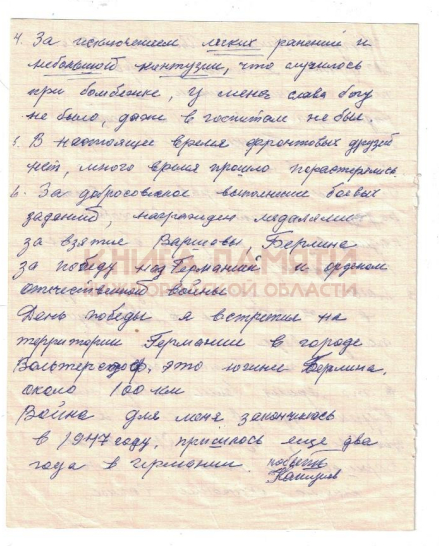 4. За исключением легких ранений и
небольшой контузии, что случилось
при бомбежке, у меня слава богу
не было, даже в госпитале не был.
5. В настоящее время фронтовых друзей
нет, много время прошло порастерялись.
6. За добросовесное выполнение боевых
заданий, награжден медалями
за взятие Варшовы, Берлина
за победу над Германией и орденом
отечественной войны
КНИГА ПАМЯТИ
ОБЛАСТИ
День победы я встретил на
территории Германии в городе
это южнее Берлина,
около 100 км
Война для меня закончилась
в 1947 году, пришлось еще два
года в германии. побыть